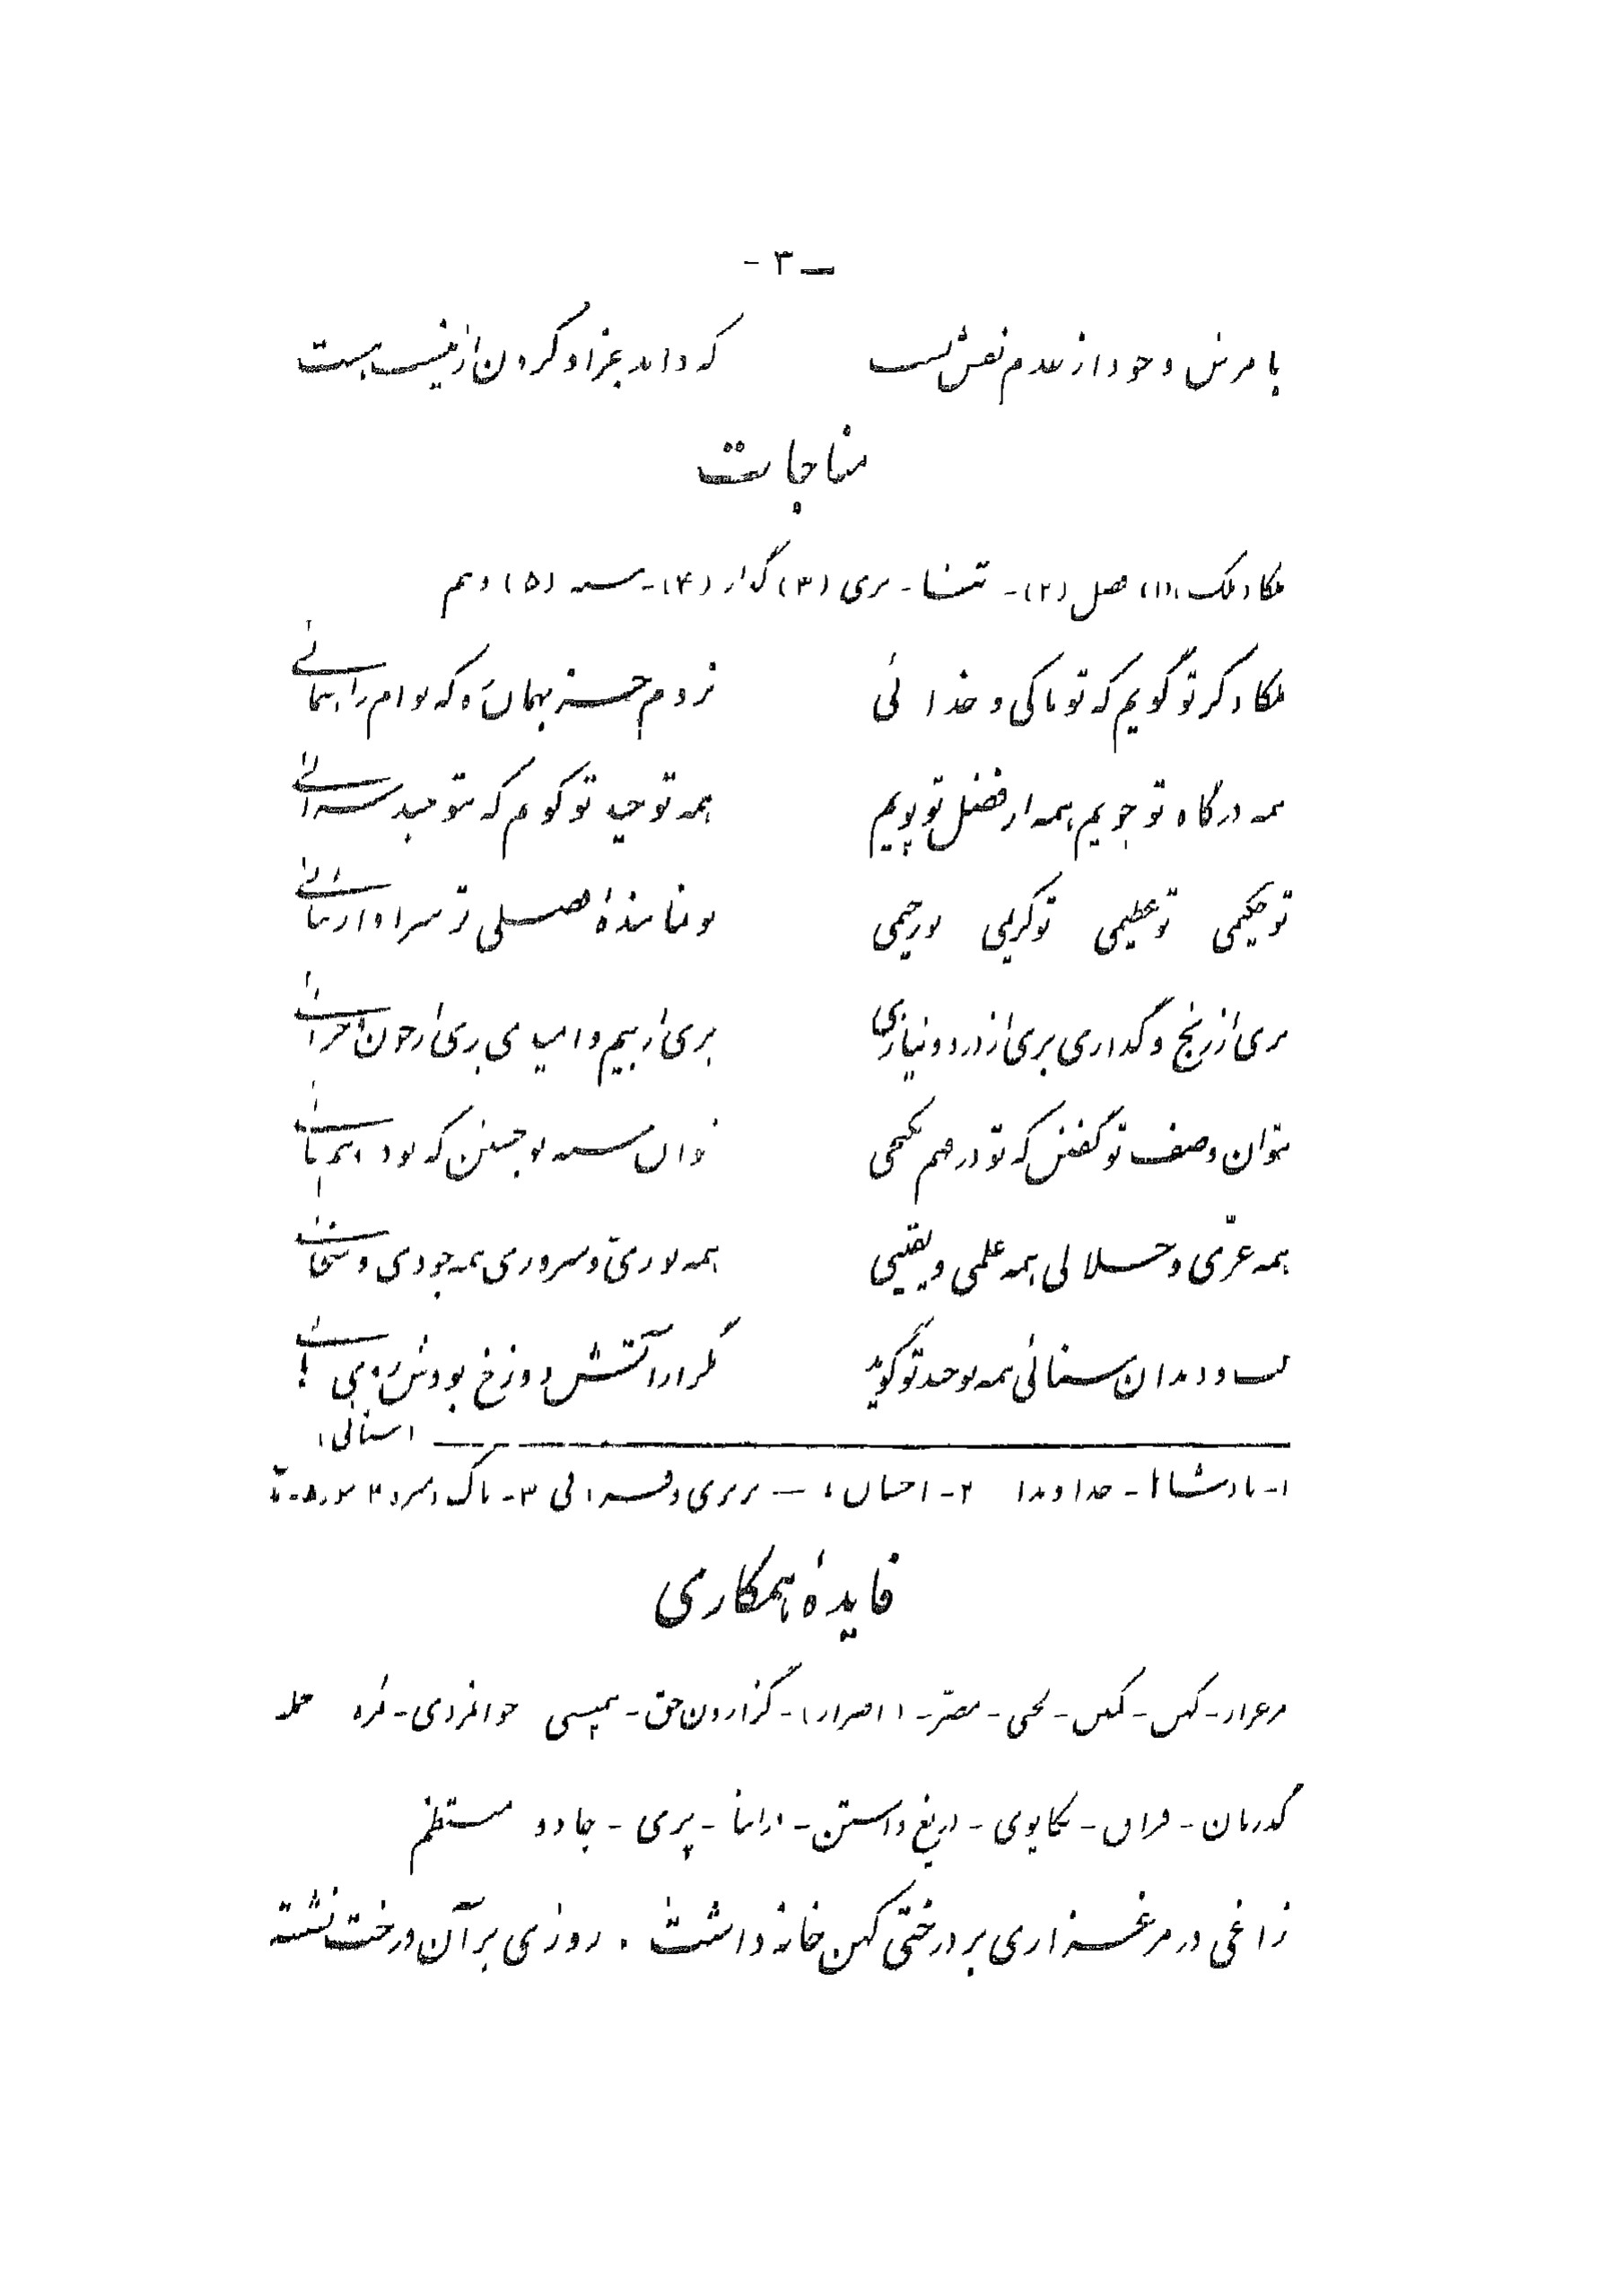 - ۳ -
بامرش وجود از عدم نقش بست که داند بجز او کردن از نیست هست
مناجات
ملکا، ملک (۱) فضل (۲) - ثنا - بری (۳) گداز (۴) - شبه (۵) وهم
ملکا ذکر تو گویم که تو پاکی و خدائی نروم جز بهمان ره که توام راهنمائی
همه درگاه تو جویم همه از فضل تو پویم همه توحید تو گویم که بتوحید سزائی
تو حکیمی تو عظیمی تو کریمی تو رحیمی تو نمایندهٔ فضلی تو سزاوار ثنائی
بری از رنج و گدازی بری از درد و نیازی بری از بیم و امیدی بری از چون و چرائی
نتوان وصف تو گفتن که تو در فهم نگنجی نتوان شبه تو جستن که تو در وهم نیائی
همه عزّی و جلالی همه علمی و یقینی همه نوری و سروری همه جودی و سخائی
لب و دندان سنائی همه توحید تو گوید مگر از آتش دوزخ بودش روی رهائی
(سنائی)
۱- پادشاها - خداوندا ۲- احسان، برتری و فزونی ۳- پاک و مبرا ۴
فایدهٔ همکاری
مرغزار - کهن - کمین - لختی - مصرّ - (اصرار) - گزاردن حق - سپسی جوانمردی - حمله
گذرمان - فراق - تکاپوی - دریغ داشتن - درانا - پری - جادو منتظم
زاغی در مرغزاری بر درختی کهن خانه داشت . روزی بر آن درخت نشسته